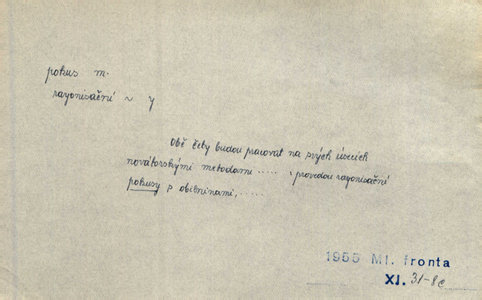 pokus m.
rayonisační ~ y
Obě čety budou pracovat na svých úsecích
novátorskými metodami ..... , provedou rayonisační
pokusy s obilninami, .....
1955 Ml. fronta
XI. 31-8c